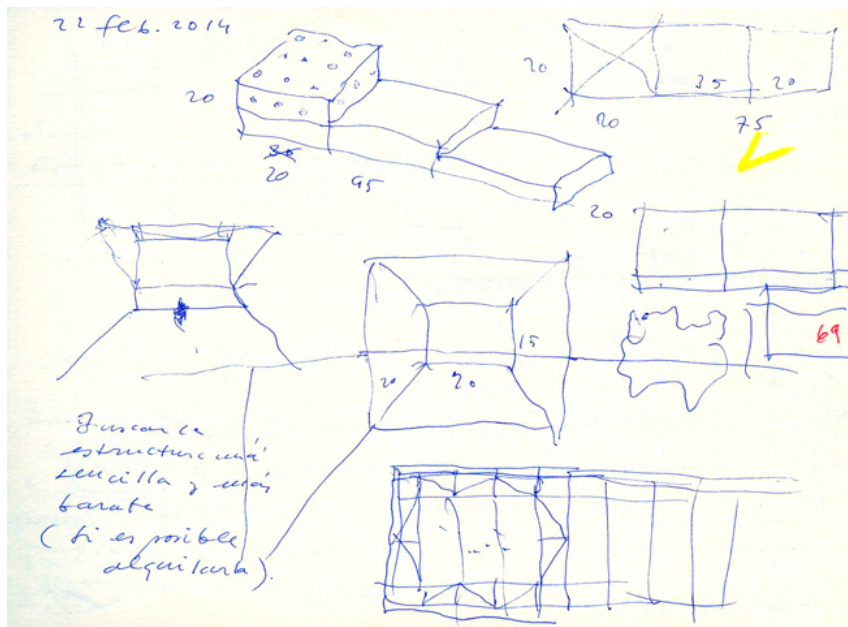 22 feb. 2014
20
35
20
95
20
20
35
20
20
75
69
15
20
20
Buscar la
estructura más
sencilla y más
barata
(Si es posible
alquilarla).